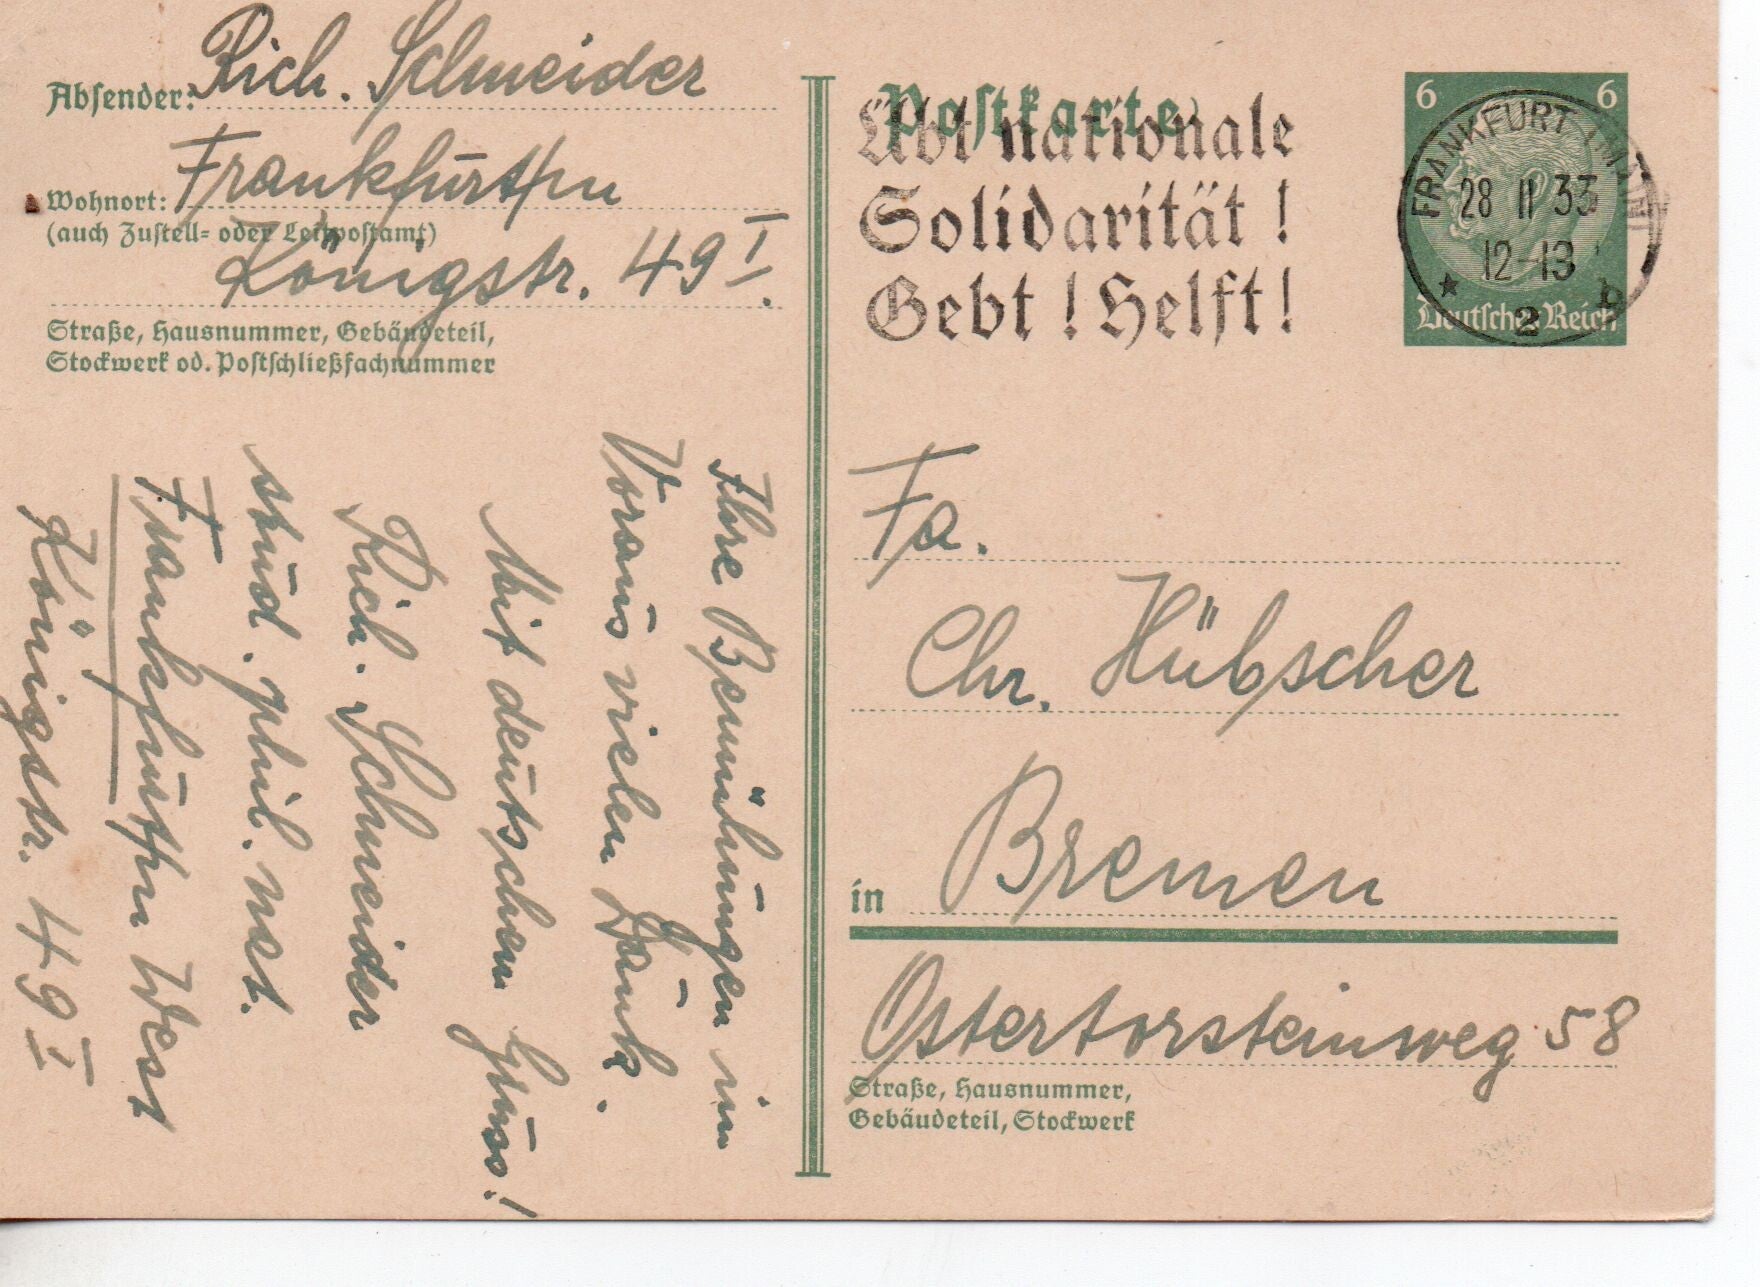 Absender: Rich. Schneider
Wohnort: Frankfurt/M
(auch Zustell- oder Leitpostamt)
Königstr. 49 I.
Straße, Hausnummer, Gebäudeteil,
Stockwerk od. Postschließfachnummer
Ihre Bemühungen im
Voraus vielen Dank.
Mit deutschem Gruss!
Rich. Schneider
stud. phil. nat.
Frankfurt/M West
Königstr. 49 I
Postkarte
Übt nationale
Solidarität!
Gebt! Helft!
6 6
FRANKFURT (MAIN)
28 11 33
12-13
* 2 b
Deutsches Reich
Fa.
Chr. Hübscher
in Bremen
Ostertorsteinweg 58
Straße, Hausnummer,
Gebäudeteil, Stockwerk